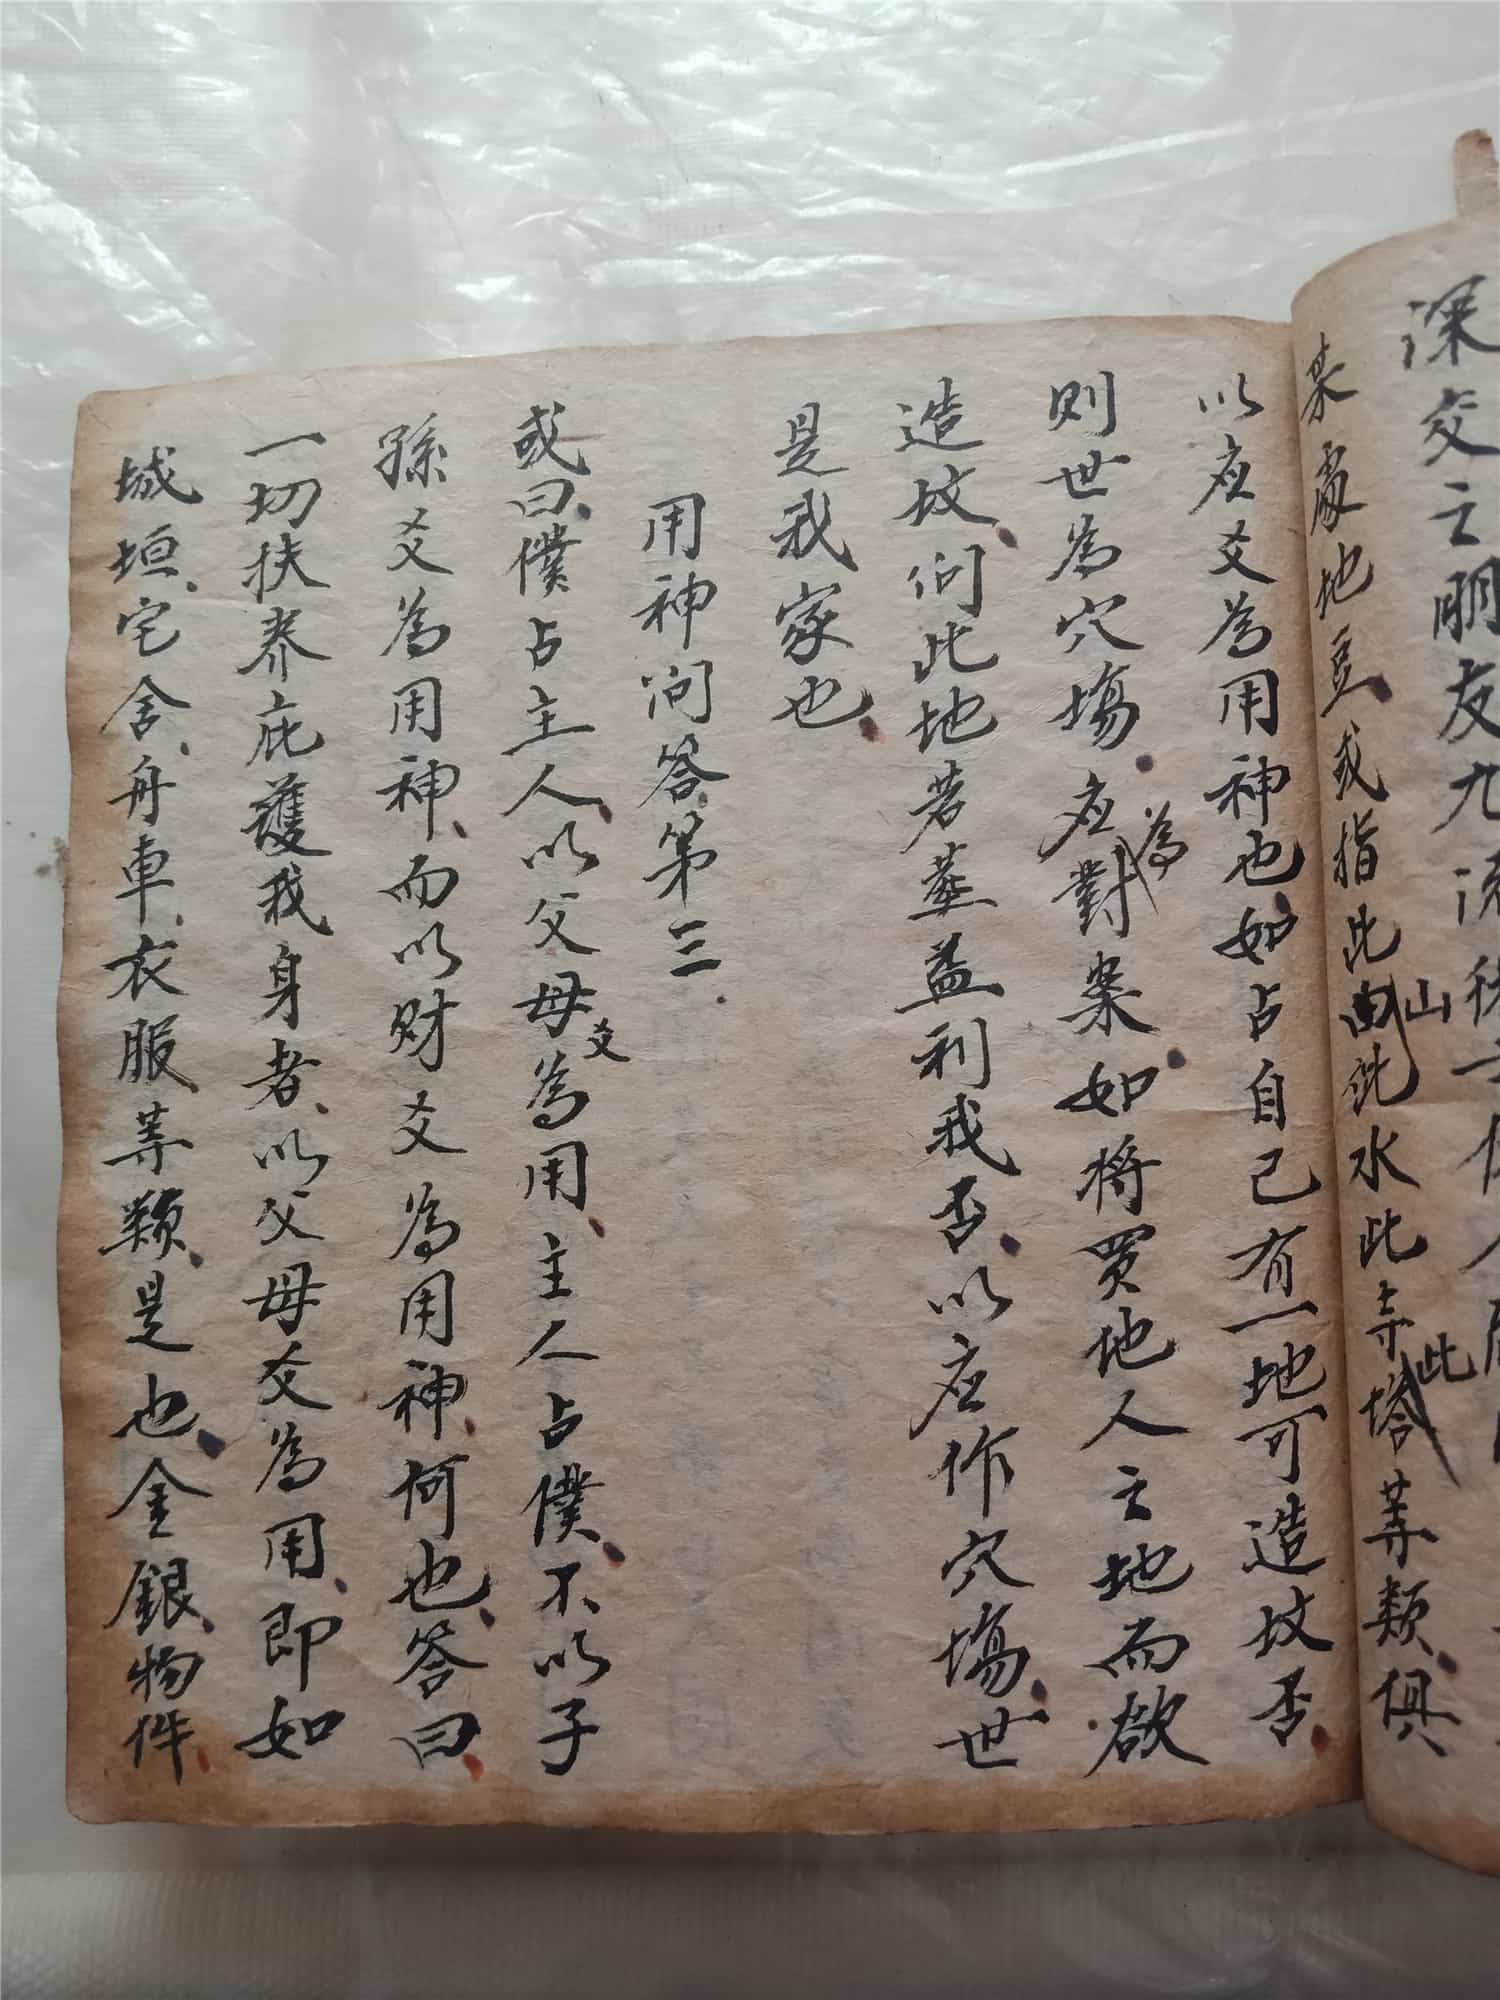 深交之朋友九流
某處地豆或指此山此水此寺此塔等類俱
以应爻為用神也如占自己有一地可造坟否
則世為穴塲应為對案如将買地人之地而欲
造坟问此地若葬益利我否以应作穴塲世
是我家也
用神问答第三
或曰僕占主人以父母爻為用主人占僕不以子
孫爻為用神而以财爻為用神何也答曰
一切扶养庇護我身者以父母爻為用即如
城垣宅舍舟車衣服等類是也金銀物件